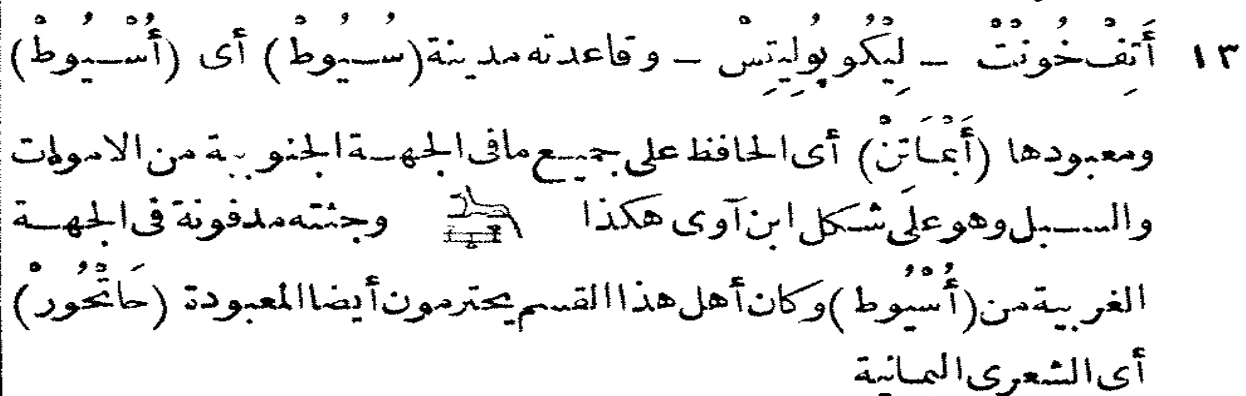 ١٣ أَتِفْ خُونْتْ – لِيْكُو پُولِيتِسْ – وقاعدته مدينة (سُسيُوطْ) أى (أُسْيُوطْ)
ومعبودها (أَبْمَاتَنْ) أى الحافظ على جميع مافى الجهة الجنوبية من الاموات
والسبل وهو على شكل ابن آوى هكذا وجثته مدفونة فى الجهة
الغربية من (أُسْيُوط) وكان أهل هذا القسم يحترمون أيضا المعبودة (حَاتْحُورْ)
أى الشعرى اليمانية